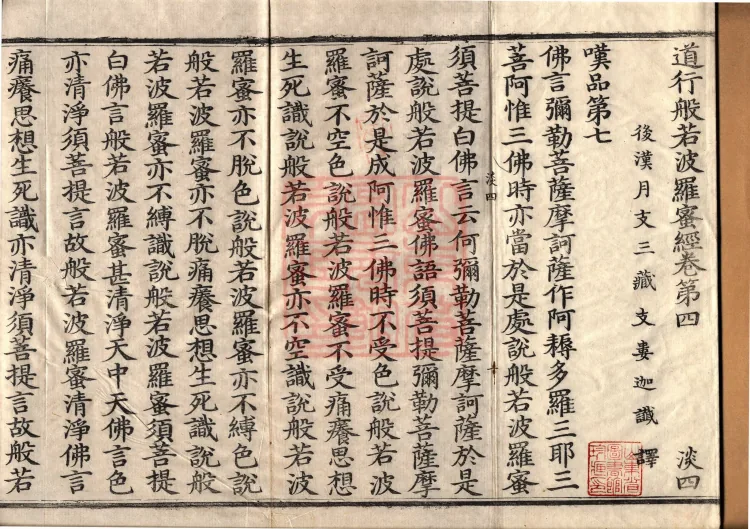 道行般若波羅蜜經卷第四 淡四
後漢月支三藏支婁迦讖譯
嘆品第七
佛言彌勒菩薩摩訶薩作阿耨多羅三耶三
菩阿惟三佛時亦當於是處說般若波羅蜜
須菩提白佛言云何彌勒菩薩摩訶薩於是
處說般若波羅蜜佛語須菩提彌勒菩薩摩
訶薩於是成阿惟三佛時不受色說般若波
羅蜜不空色說般若波羅蜜不受痛癢思想
生死識說般若波羅蜜亦不空識說般若波
羅蜜亦不脫色說般若波羅蜜亦不縛色說
般若波羅蜜亦不脫痛癢思想生死識說般
若波羅蜜亦不縛識說般若波羅蜜須菩提
白佛言般若波羅蜜甚清淨天中天佛言色
亦清淨須菩提言故般若波羅蜜清淨佛言
痛癢思想生死識亦清淨須菩提言故般若
淡四